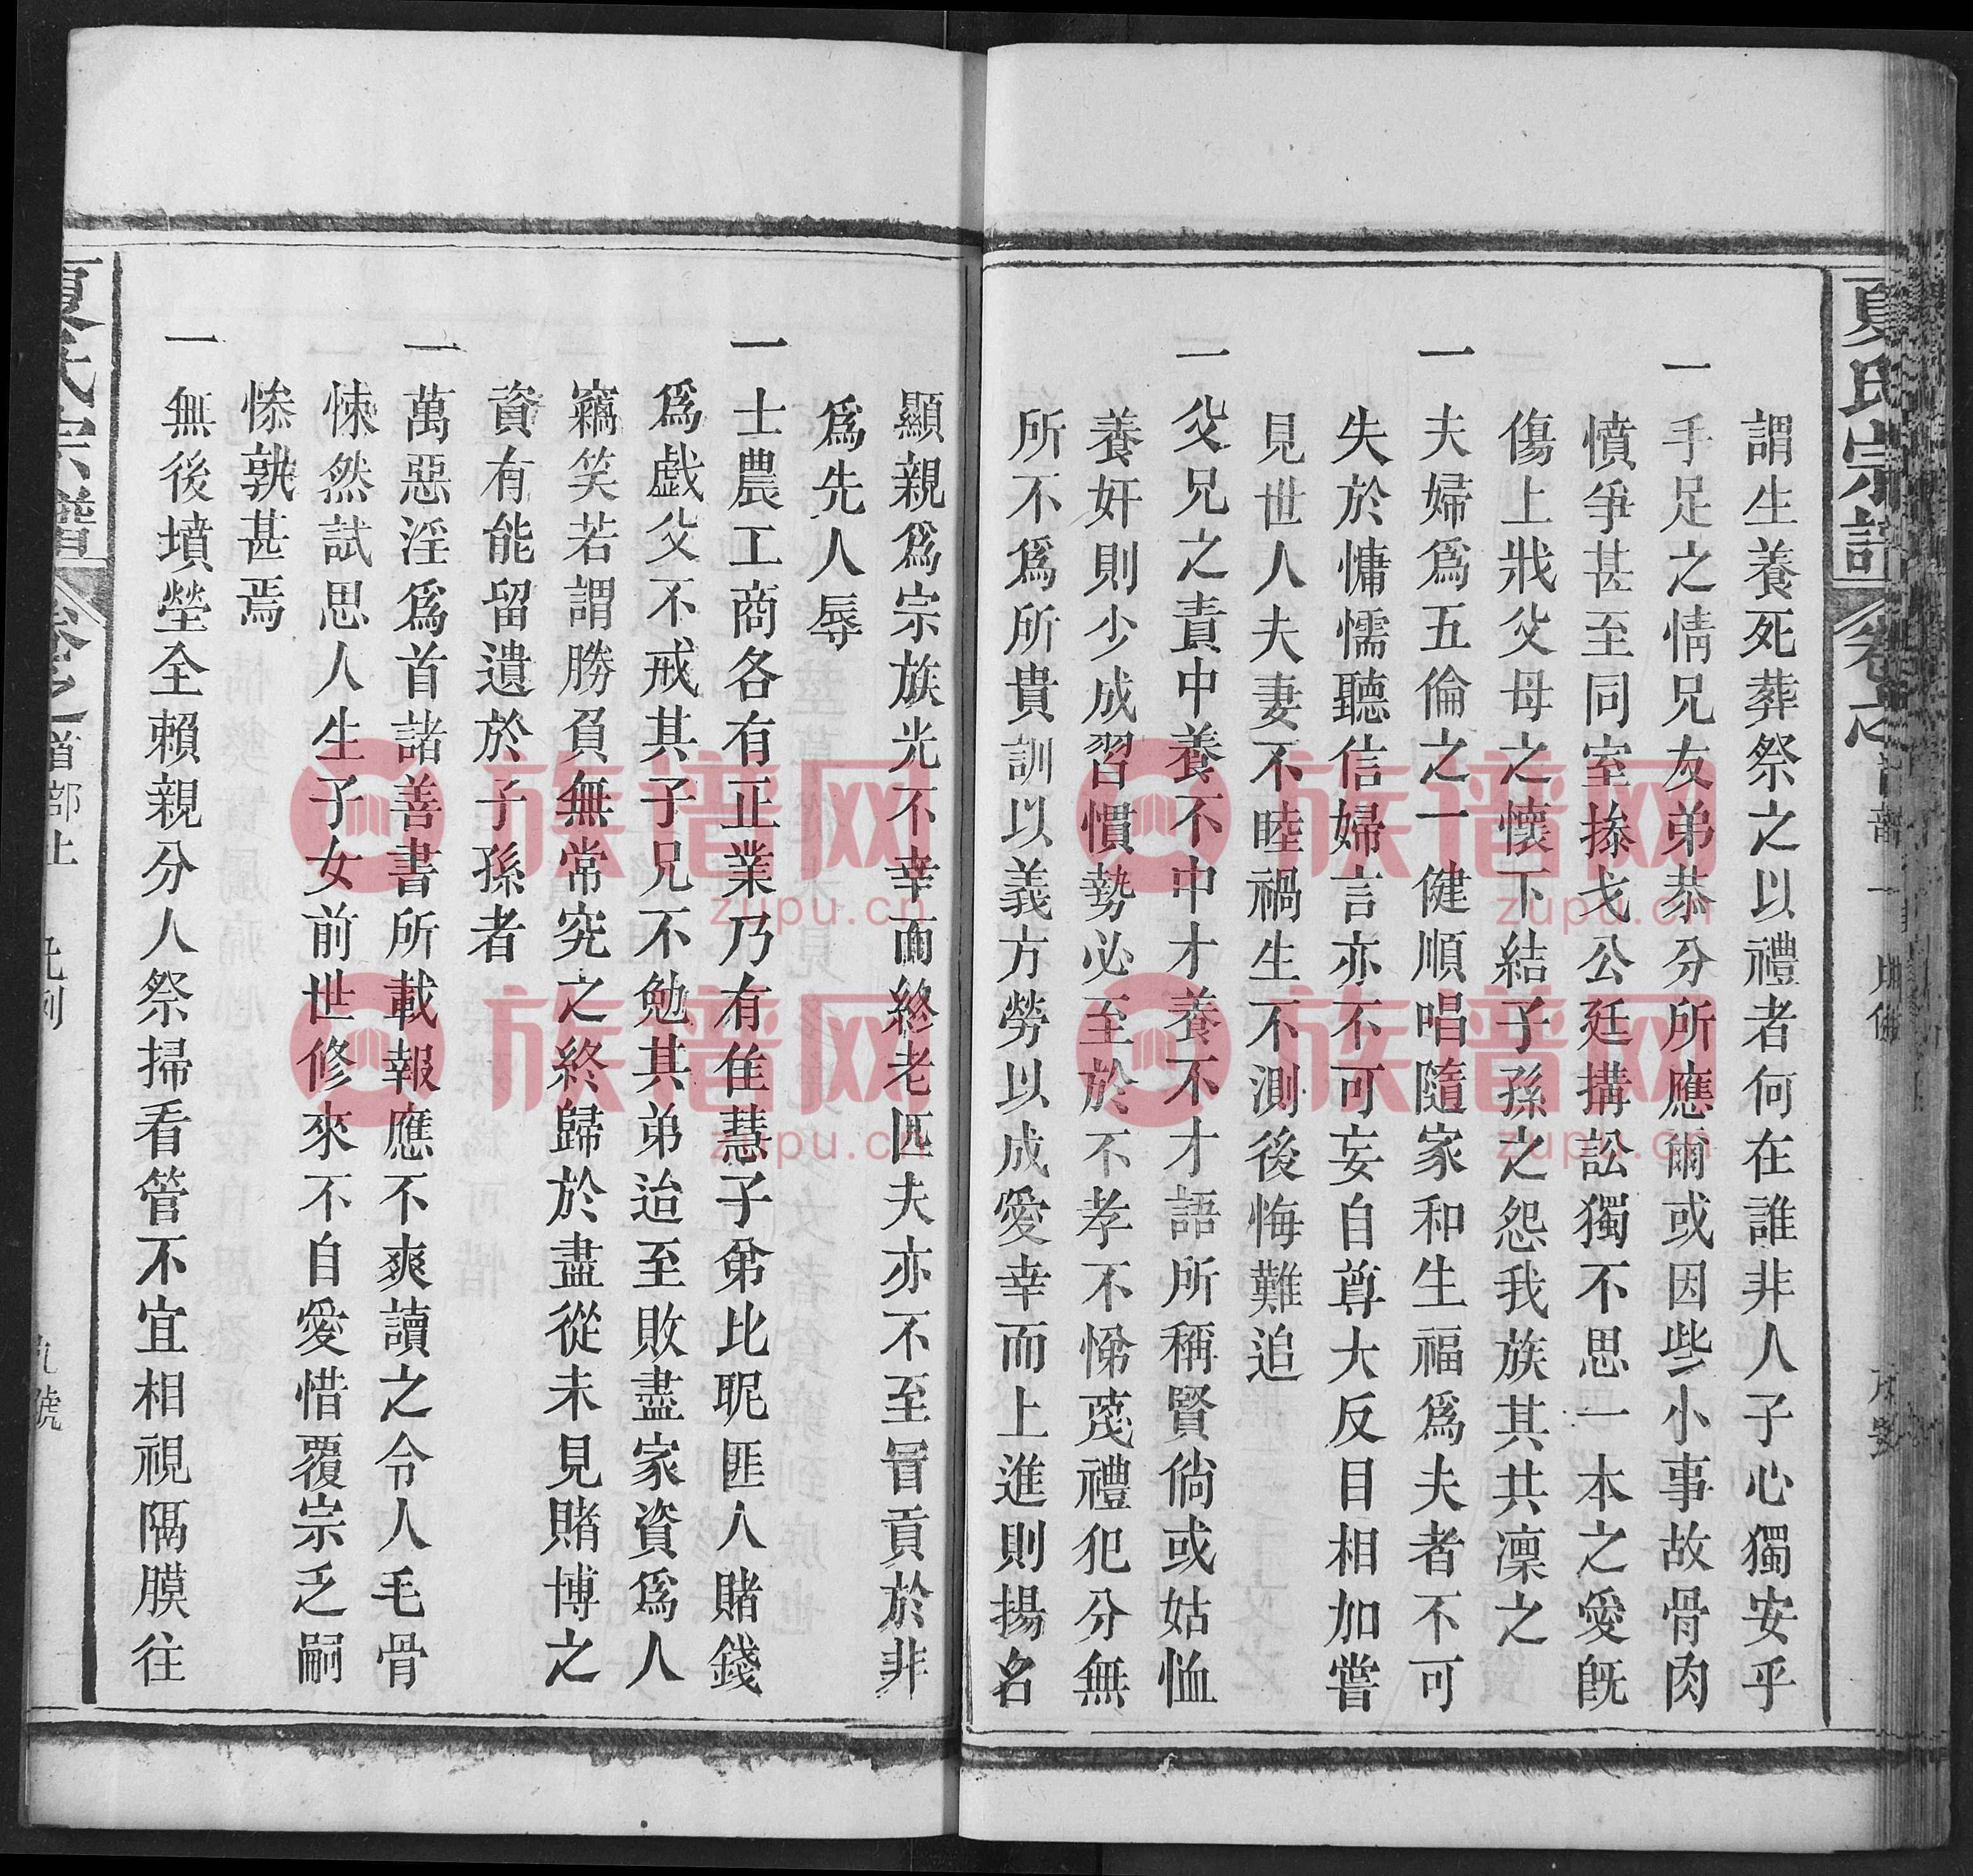 夏氏宗譜
卷之
謂生養死葬祭之以禮者何在誰非人子心獨安乎
一手足之情兄友弟恭分所應爾或因些小事故骨肉
憤爭甚至同室掺戈公廷搆訟獨不思一本之愛旣
傷上戕父母之懷下結子孫之怨我族其共凜之
一夫婦爲五倫之一健順唱隨家和生福爲夫者不可
失於慵懦聽信婦言亦不可妄自尊大反目相加嘗
見世人夫妻不睦禍生不測後悔難追
一父兄之責中養不中才養不才語所稱賢倘或姑恤
養奸則少成習慣勢必至於不孝不悌蔑禮犯分無
所不爲所貴訓以義方勞以成愛幸而上進則揚名
顯親爲宗族光不幸而終老匹夫亦不至冒貢於非
爲先人辱
一士農工商各有正業乃有隹慧子弟比昵匪人賭錢
爲戯父不戒其子兄不勉其弟迨至敗盡家資爲人
竊笑若謂勝負無常究之終歸於盡從未見賭博之
資有能留遺於子孫者
一萬惡淫爲首諸善書所載報應不爽讀之令人毛骨
悚然試思人生子女前世修來不自愛惜覆宗乏嗣
慘孰甚焉
一無後墳塋全賴親分人祭掃看管不宜相視隔膜往
夏氏宗譜
卷之首部上
凡例
九號
族谱网
zupu.cn
族谱网
zupu.cn
族谱网
zupu.cn
族谱网
zupu.cn